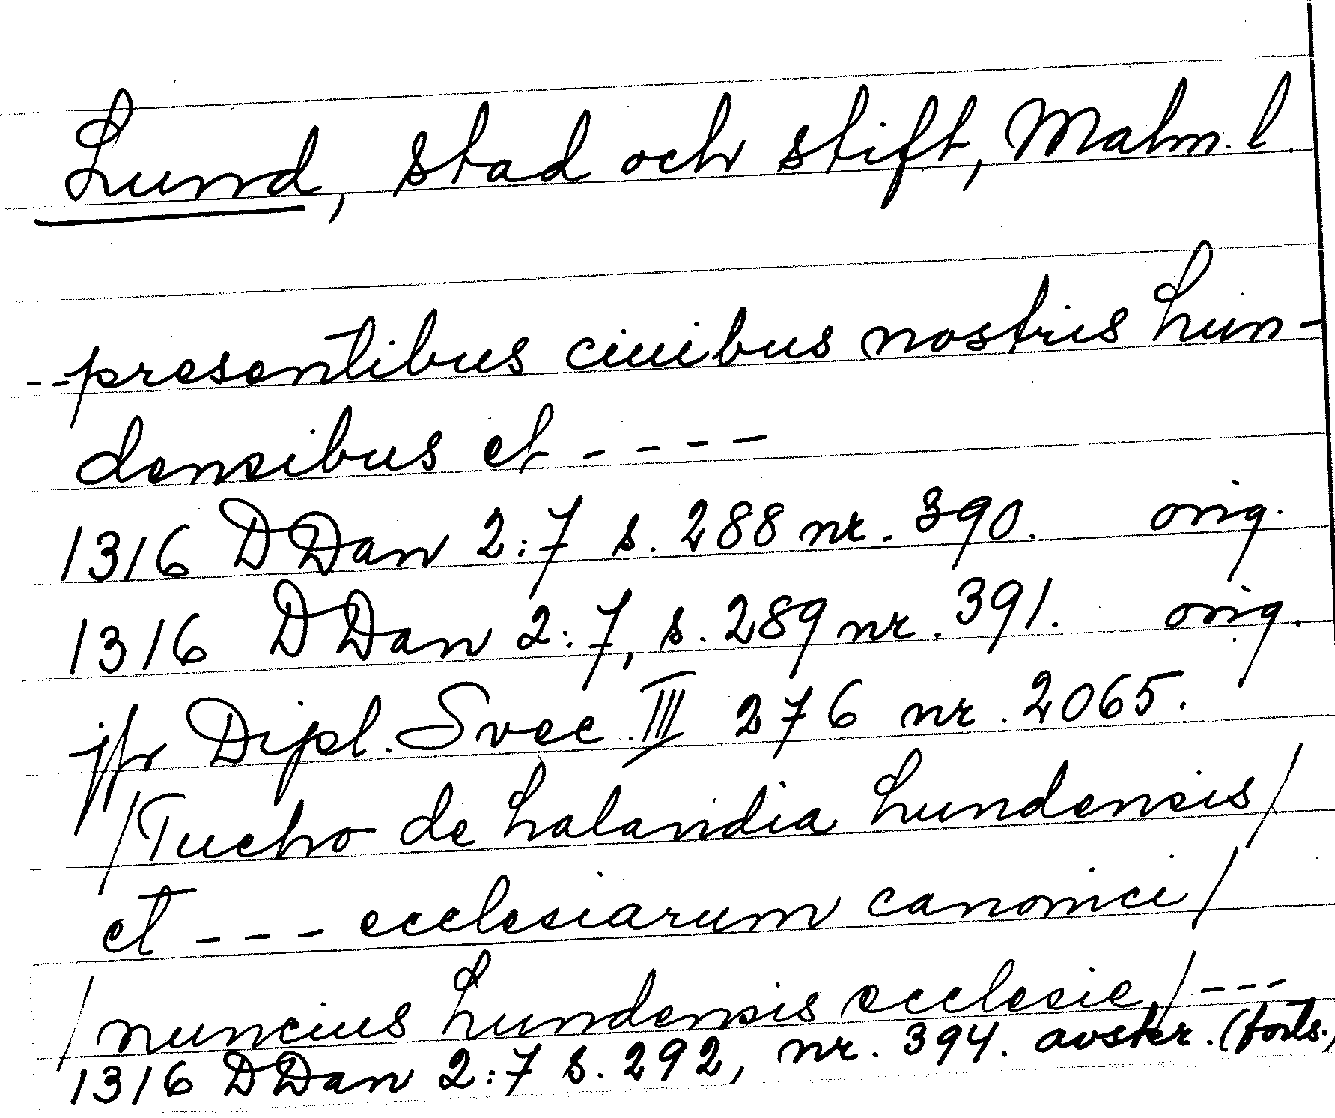 Lund, stad och stift, Malm. l.
--presentibus ciuibus nostris Lun-
densibus et ----
1316 DDan 2:7 s. 288 nr. 390. orig.
1316 DDan 2:7, s. 289 nr. 391. orig.
jfr Dipl. Svec. III 276 nr. 2065.
/Tucho de Lalandia Lundensis/
et --- ecclesiarum canonici/
/nuncius Lundensis ecclesie,/---
1316 DDan 2:7 s. 292, nr. 394. avskr. (forts.,